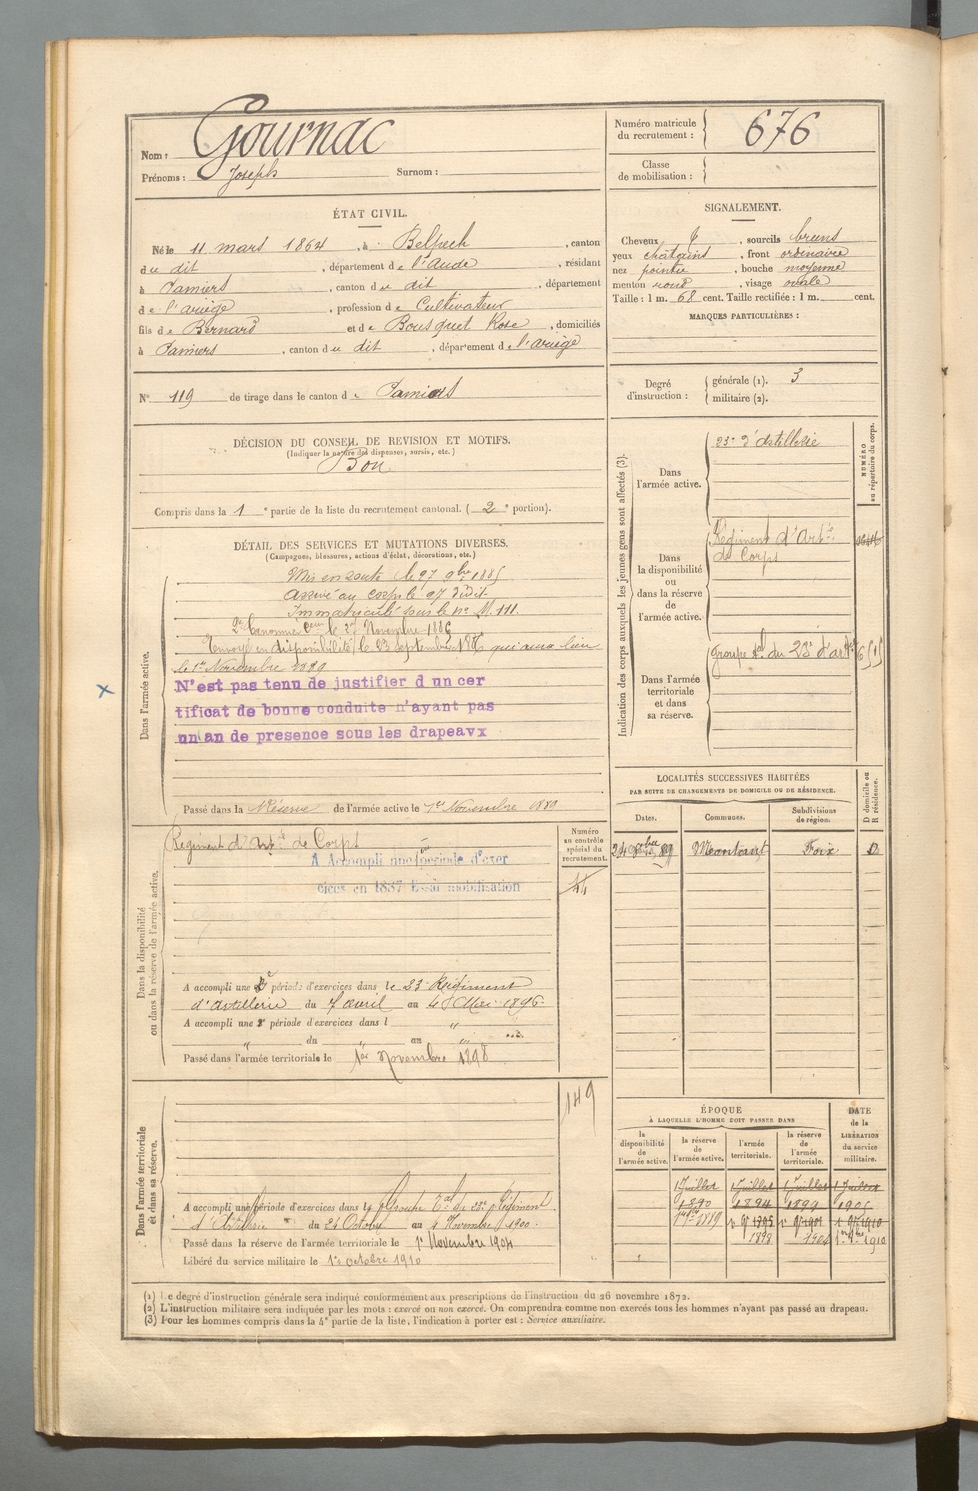 Nom : Gournac
Prénoms : Joseph Surnom :
Numéro matricule du recrutement : 676
Classe de mobilisation :
ÉTAT CIVIL.
Né le 11 mars 1864, à Belpech, canton
du dit, département de l'Aude, résidant
à Pamiers, canton du dit, département
de l'ariège, profession de Cultivateur
fils de Bernard et de Bousquet Rose, domiciliés
à Pamiers, canton du dit, département de l'ariège
SIGNALEMENT.
Cheveux , sourcils bruns
yeux chatains, front ordinaire
nez pointu, bouche moyenne
menton rond, visage ovale
Taille : 1 m. 68 cent. Taille rectifiée : 1 m. cent.
MARQUES PARTICULIÈRES :
N° 119 de tirage dans le canton de Pamiers
Degré d'instruction : générale (1). 3
militaire (2).
DÉCISION DU CONSEIL DE REVISION ET MOTIFS.
(Indiquer la nature des dispenses, sursis, etc.)
Bon
Compris dans la 1e partie de la liste du recrutement cantonal. (2e portion).
DÉTAIL DES SERVICES ET MUTATIONS DIVERSES.
(Campagnes, blessures, actions d'éclat, décorations, etc.)
Dans l'armée active.
Mis en route le 27 9bre 1885
arrivé au corps le 27 dudit
Immatriculé sous le n° M. 111.
2e Canonnier Ceur le 27 Novembre 1886
Envoyé en disponibilité le 23 septembre 1886 qui aura lieu
le 1er Novembre 1889
N'est pas tenu de justifier d un cer
tificat de bonne conduite n'ayant pas
un an de presence sous les drapeavx
Passé dans la Réserve de l'armée active le 1er Novembre 1889
Indication des corps auxquels les jeunes gens sont affectés (3).
NUMÉRO au répertoire du corps.
Dans l'armée active.
23e d'Artillerie
Dans la disponibilité ou dans la réserve de l'armée active.
Régiment d'Artie
de Corps
Dans l'armée territoriale et dans sa réserve.
Groupe tal du 23e d'artie
LOCALITÉS SUCCESSIVES HABITÉES
PAR SUITE DE CHANGEMENTS DE DOMICILE OU DE RÉSIDENCE.
D domicile ou R résidence.
Dates. Communes. Subdivisions de région.
24 89 Montaut Foix D
Dans la disponibilité ou dans la réserve de l'armée active.
Numéro au contrôle spécial du recrutement.
Régiment d'Artie de Corps
A Accompli une période d'exer
cices en 1887 Essai mobilisation
A accompli une 2e période d'exercices dans le 23 Régiment
d'artillerie du 7 avril au 4 Mai 1896.
A accompli une 2e période d'exercices dans l "
" du " au "
Passé dans l'armée territoriale le 1er Novembre 1898
Dans l'armée territoriale et dans sa réserve.
149
A accompli une période d'exercices dans le Groupe tal du 23e Régiment
d'Artillerie du 24 Octobre au 4 Novembre 1900.
Passé dans la réserve de l'armée territoriale le 1er Novembre 1904
Libéré du service militaire le 1er octobre 1910
ÉPOQUE
À LAQUELLE L'HOMME DOIT PASSER DANS
DATE de la LIBÉRATION du service militaire.
la disponibilité de l'armée active. la réserve de l'armée active. l'armée territoriale. la réserve de l'armée territoriale.
1 Juillet 1 Juillet 1 Juillet 1 Juillet
1890 1894 1899 1905
1889 1895 1901 1910
1898 1904 1910
(1) Le degré d'instruction générale sera indiqué conformément aux prescriptions de l'instruction du 26 novembre 1872.
(2) L'instruction militaire sera indiquée par les mots : exercé ou non exercé. On comprendra comme non exercés tous les hommes n'ayant pas passé au drapeau.
(3) Pour les hommes compris dans la 4e partie de la liste, l'indication à porter est : Service auxiliaire.